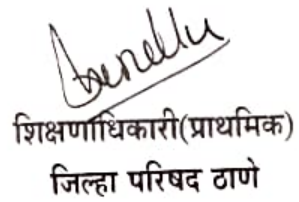 शिक्षणाधिकारी(प्राथमिक)
जिल्हा परिषद ठाणे